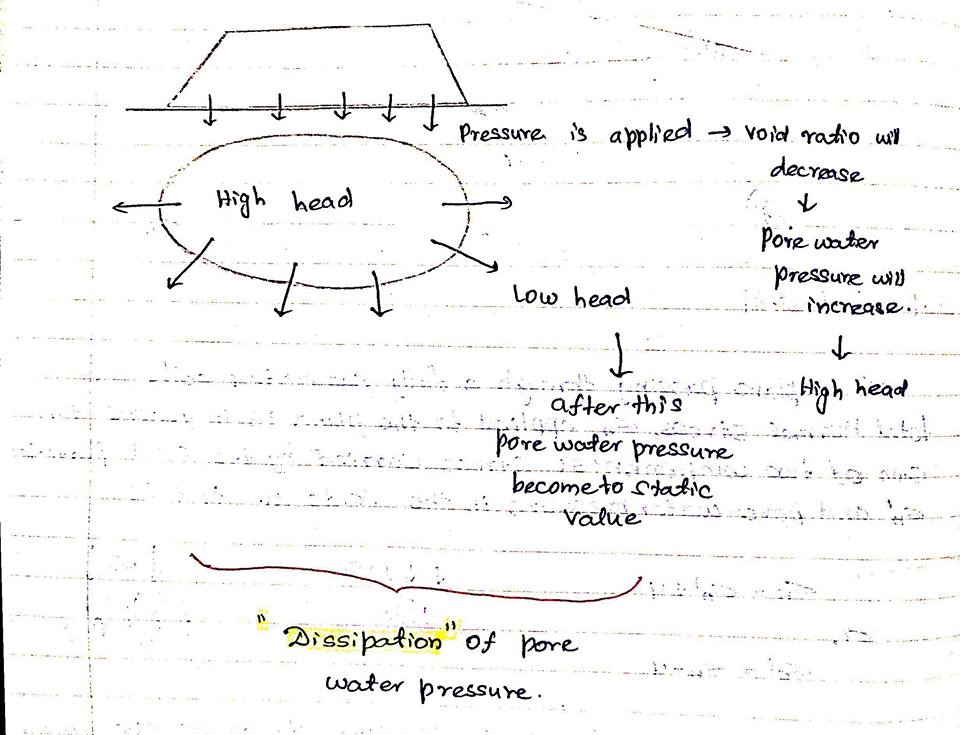 Pressure is applied → void ratio will
decrease
↓
Pore water
pressure will
increase.
↓
High head
High head
Low head
↓
after this
pore water pressure
become to static
value
"Dissipation" of pore
water pressure.